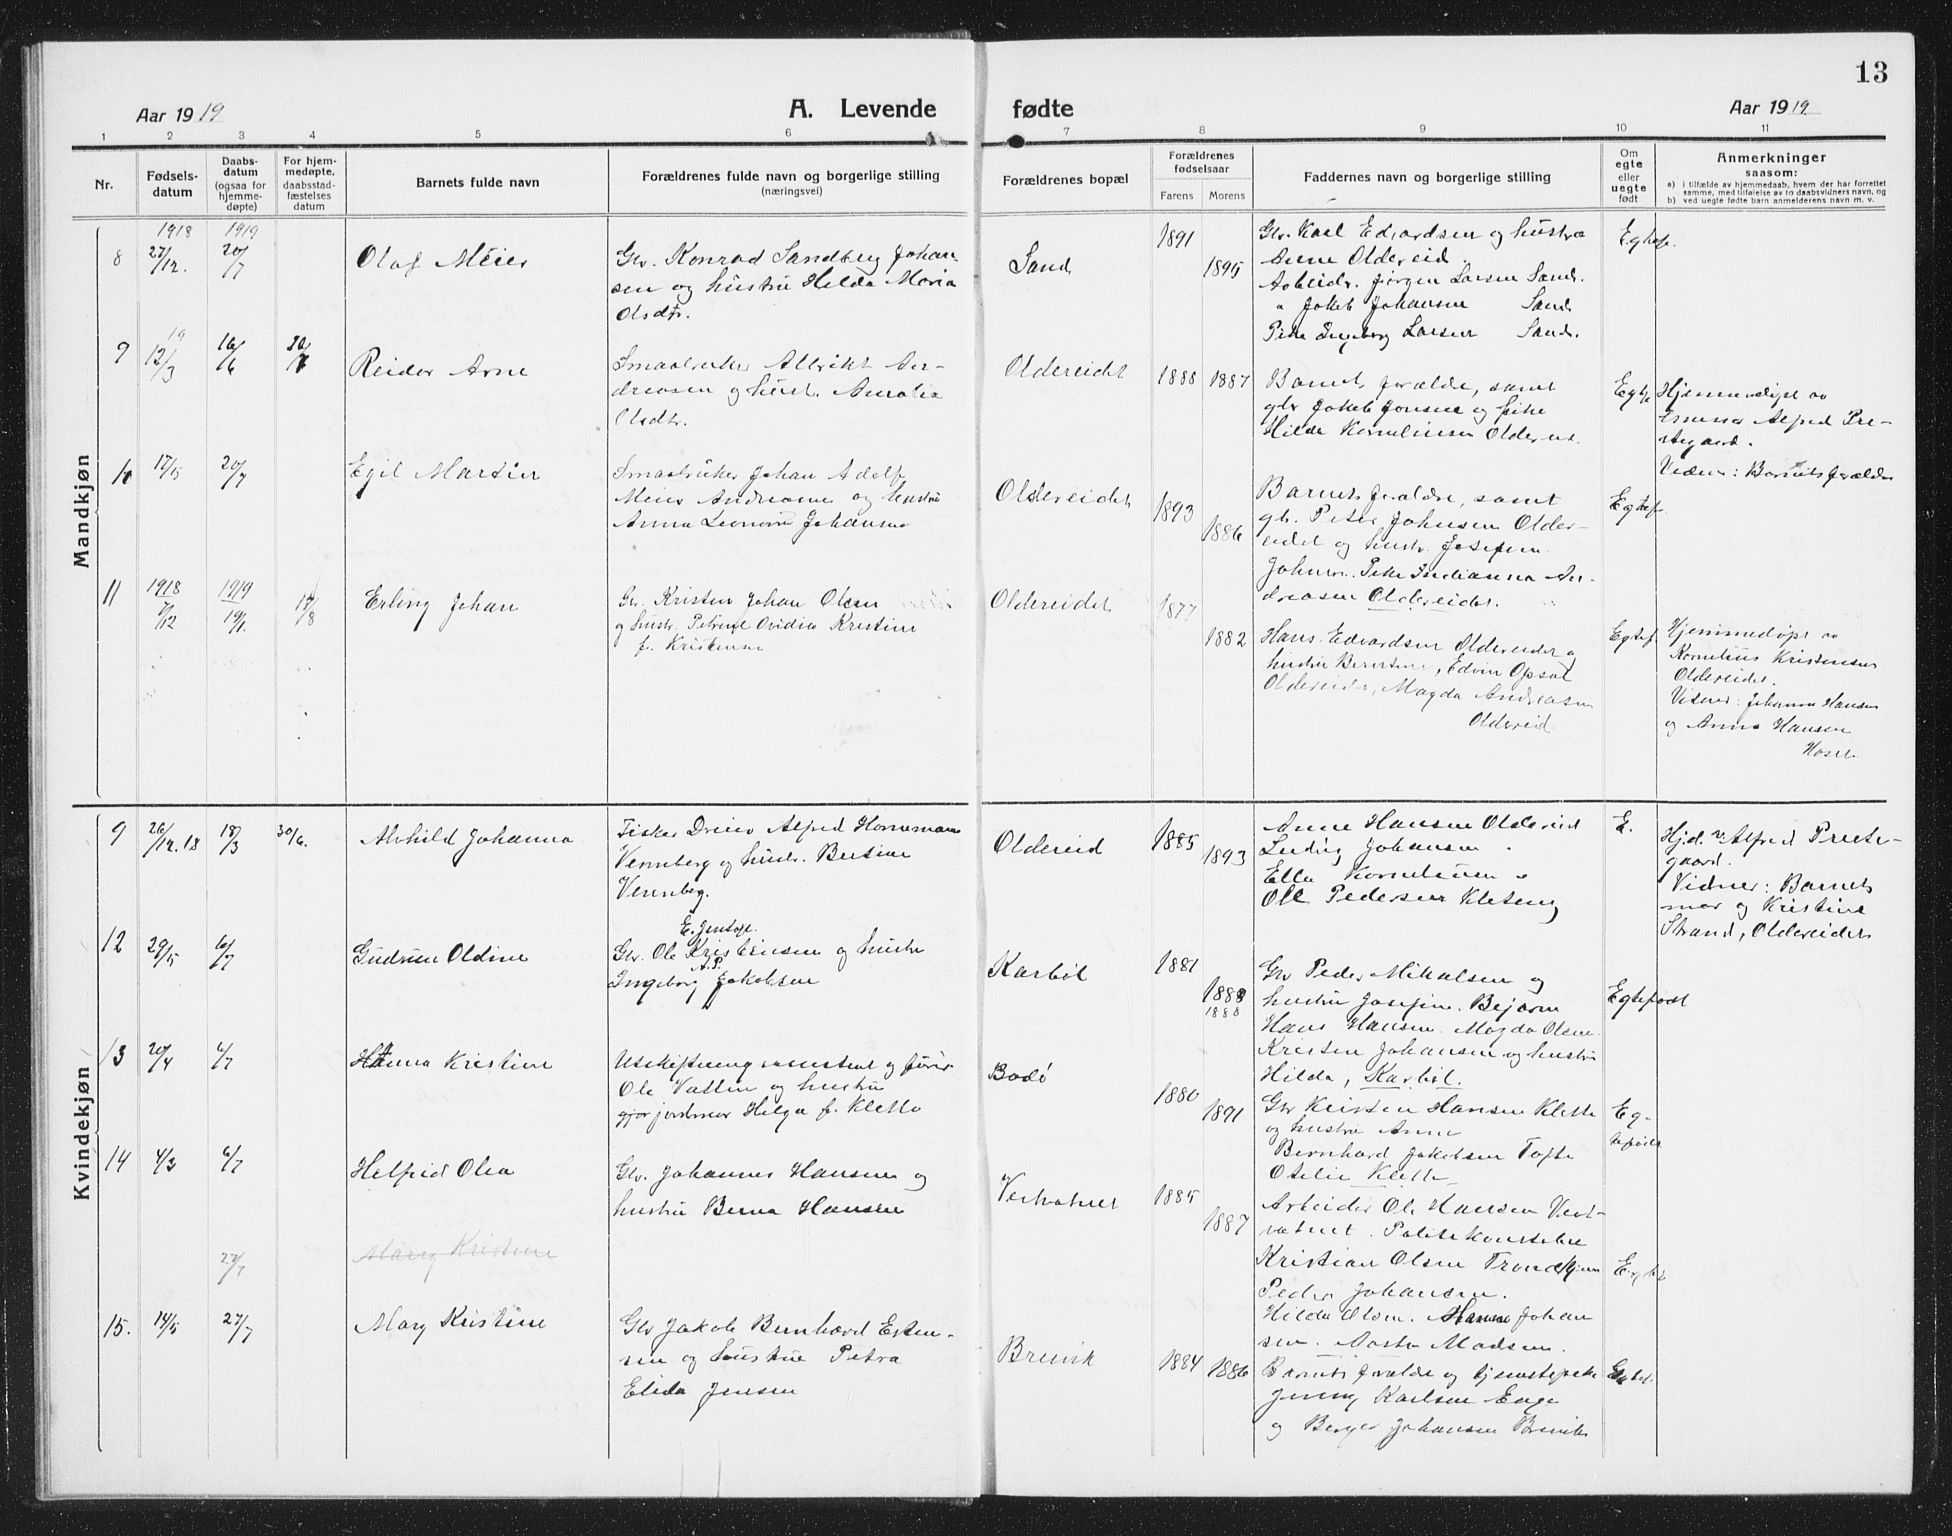 13
Aar 1919
A. Levende fødte
Aar 1919
1 2 3 4 5 6 7 8 9 10 11
Nr.
Fødsels-
datum
Daabs-
datum
(ogsaa for
hjemme-
døpte)
For hjem-
medøpte,
daabsstad-
fæstelses
datum
Barnets fulde navn
Forældrenes fulde navn og borgerlige stilling
(næringsvei)
Forældrenes bopæl
Forældrenes
fødselsaar
Farens Morens
Faddernes navn og borgerlige stilling
Om
egte
eller
uegte
født
Anmerkninger
saasom:
a) i tilfælde av hjemmedaab, hvem der har forrettet
samme, med tilføielse av to daabsvidners navn, og
b) ved uegte fødte barn anmelderens navn m. v.
Mandkjøn
1918 1919
8 27/12. 20/7
Olaf Meier
Gbr. Konrad Sandberg Johan
sen og hustru Hilda Maria
Olsdtr.
Sand
1891
1895
Gbr. Karl Edvardsen og hustru
Anne Oldereid.
Arbeidr. Jørgen Larsen Sand.
" Jakob Johansen Sand
Pike Ingeborg Larsen Sand.
Egtef.
19
9 12/3 16/6
Reidar Arne
Smaabruker Albrikt An-
dreasen og hust. Amalia
Olsdtr.
Oldereidet
1888 1887
Barnets forældre, samt
gbr Jakob Jonsen og pike
Hilda Kornelius­sen
Hjemmedøpt av
Alfred Pre-
stegaard.
Vidner: Barnets forældre
10 17/5 20/7
Egil Martin
Smaabruker Johan Adolf
Meier Andreasen og hustru
Anna Leonore Johansen
Oldereidet
1893
1886
Barnets forældre, samt
gbr. Peter Johnsen Older-
eidet og hustr. Josefine
Johnsen. Pike Indianna An-
dreasen Oldereidet.
Egtef.
11 1918 1919
7/12 19/1. 17/8
Erling Johan
Gbr. Kristen Johan Olsen
og hustr. Petrine Ovidie Kristine
f. Kristensen
Oldereidet
1877
1882
Hans Edvardsen Oldereidet og
hustru Berntine, Edvin Opsal
Oldereidet, Magda Andreasen
Oldereid.
Egtef.
Hjemmedøpt av
Kornelius Kristensen
Oldereidet.
Vidner: Johanna Hansen
og Anna Hansen
Kvindekjøn
9 26/12.18 18/3 30/6.
Alvhild Johanna
Fisker Alfred Hornemann
Vennberg og hustr. Bertine
Vennberg.
Oldereid
1885
1893
Anne Hansen Oldereid
Ludvig Johansen "
Ella Korneliussen "
Ole Pedersen
E.
Hj.d. v. Alfred Preste-
gaard.
Vidner: Barnets
mor og Kristine
Strand, Oldereidet
12 29/5 6/7
Gudrun Oldine
Gbr. Ole Kristensen og hustru
A.P.
Ingeborg Jakobsen
Karbøl
1881
1888
1888
Gbr Peder Mikalsen og
hustru Josefine. Bejarn
Hans Hansen. Magda Olsen.
Kristen Johansen og hustru
Hilda, Karbøl.
Egtefødt
13 20/4 6/7
Hanna Kristine
Utskiftningsassistent og
Ole Vatten og hustru
jordmor Helga f. Klette
Bodø
1880
1891
Gbr Kristen Hansen Klette
og hustru Anne
Bernhard Jakobsen Tofte
Otelie Klette
Eg-
tefødt
14 4/3 6/7
Helfrid Olea
Gbr. Johannes Hansen og
hustru Berna Hansen
Vestvatnet
1885
1887
Arbeider Ole Hansen Vest-
vatnet. Politikonstabel
Kristian Olsen Trondhjem
Peder Johansen.
Hilda Olsen. Hanna Johan
sen. Aasta Madsen.
27/7
Mary Kristine
15. 14/5 27/7
Mary Kristine
Gbr Jakob Bernhard Esten-
sen og hustru Petra
Elida Jensen
Breivik
1884 1886
Barnets forældre og tjenestepike
Jenny Karlsen Enge
og Berger Johansen Breivik
Egtef.